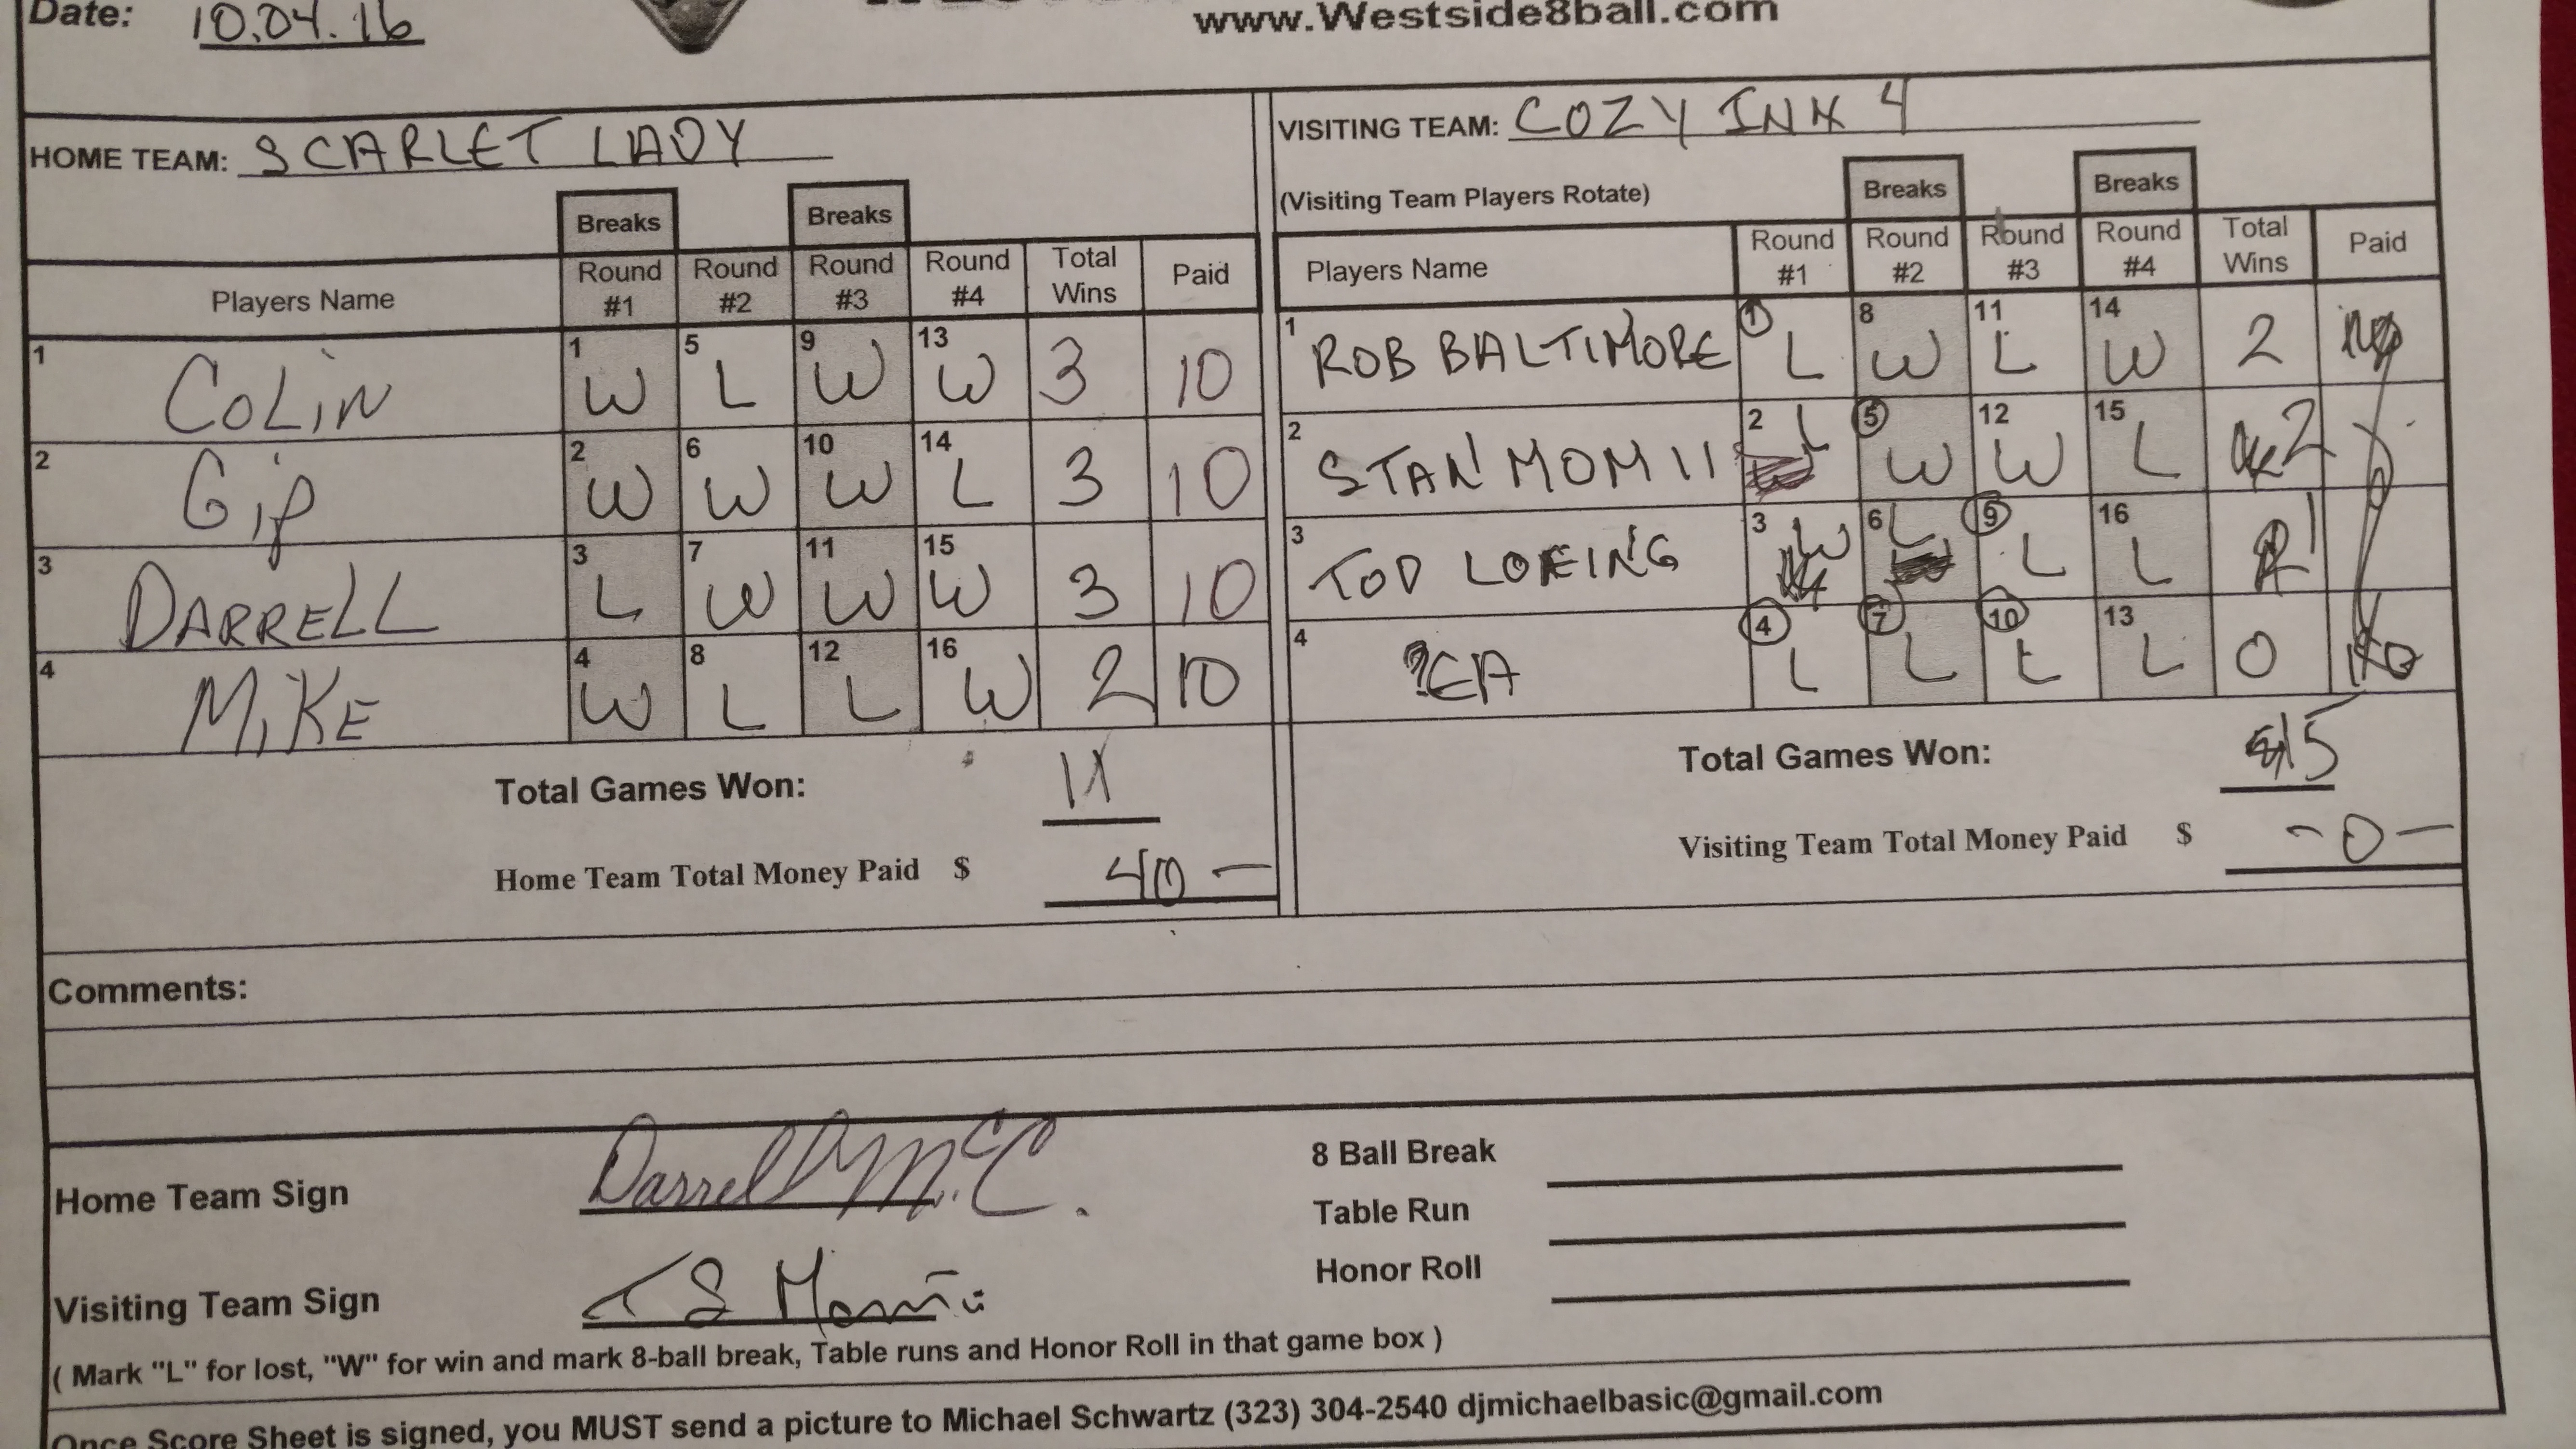 Date: 10.04.16
www.Westside8ball.com
HOME TEAM: SCARLET LADY
VISITING TEAM: COZY INN 4
(Visiting Team Players Rotate)
Breaks Breaks
Breaks Breaks
Players Name Round #1 Round #2 Round #3 Round #4 Total Wins Paid
1 COLIN 1 W 5 L 9 W 13 W 3 10
2 Gip 2 W 6 W 10 W 14 L 3 10
3 DARRELL 3 L 7 W 11 W 15 W 3 10
4 MIKE 4 W 8 L 12 L 16 W 2 10
Total Games Won: 11
Home Team Total Money Paid $ 40 —
Players Name Round #1 Round #2 Round #3 Round #4 Total Wins Paid
1 ROB BALTIMORE 1 L 8 W 11 L 14 W 2
2 STAN MOM II 2 L 5 W 12 W 15 L 2
3 TOD 3 W 6 L 9 L 16 L 1
4 4 L 7 L 10 L 13 L 0
Total Games Won: 5
Visiting Team Total Money Paid $ - 0 —
Comments:
Home Team Sign Darrell McC.
Visiting Team Sign
8 Ball Break
Table Run
Honor Roll
( Mark "L" for lost, "W" for win and mark 8-ball break, Table runs and Honor Roll in that game box )
Once Score Sheet is signed, you MUST send a picture to Michael Schwartz (323) 304-2540 djmichaelbasic@gmail.com